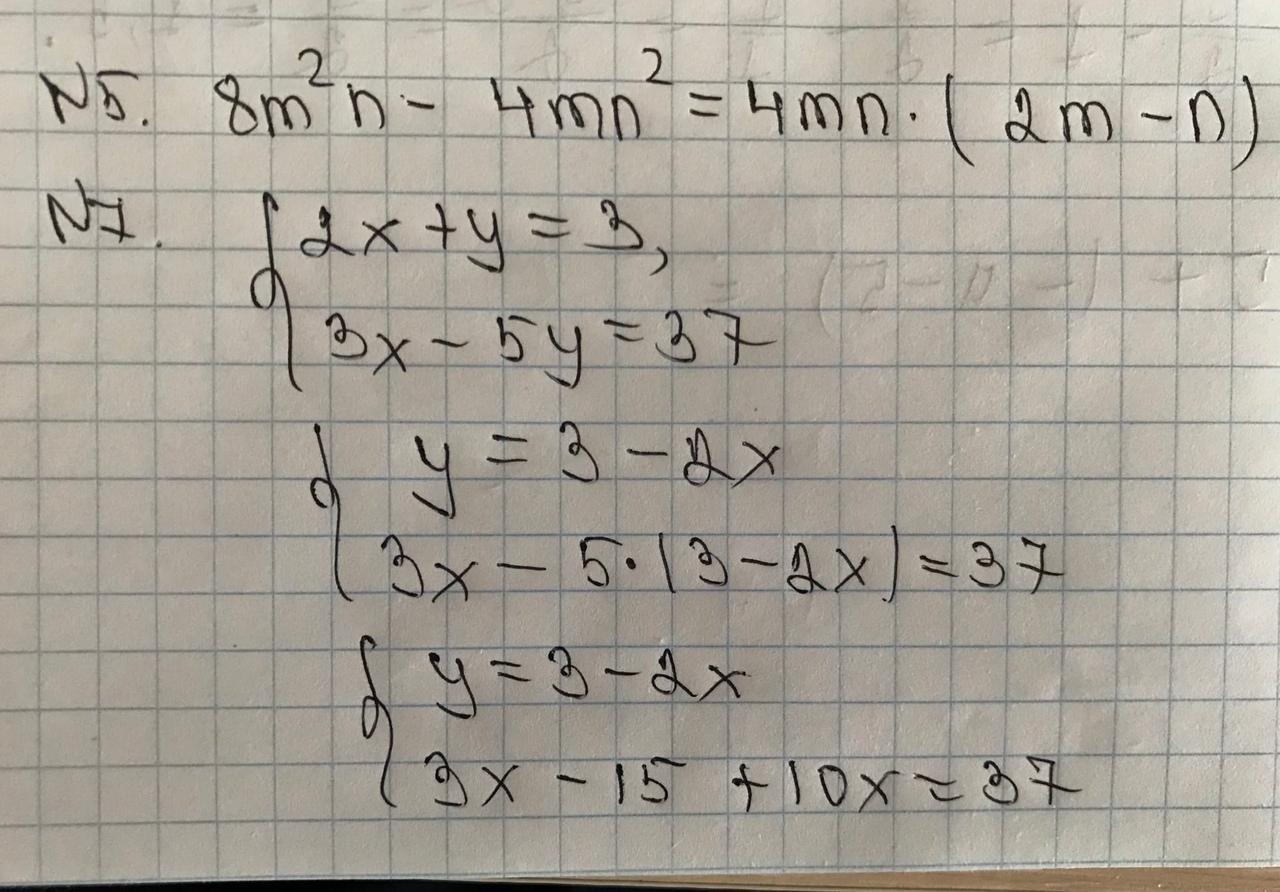 N5. 8m²n - 4mn² = 4mn · (2m - n)
N7. { 2x + y = 3,
3x - 5y = 37
{ y = 3 - 2x
3x - 5·(3 - 2x) = 37
{ y = 3 - 2x
3x - 15 + 10x = 37